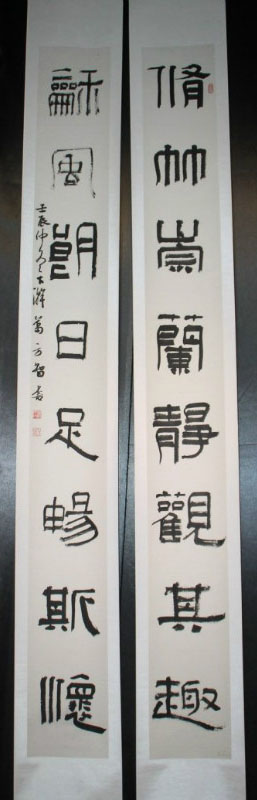 脩竹崇蘭靜觀其趣
龢風朗日足暢斯懷
壬辰仲冬 萬方智書